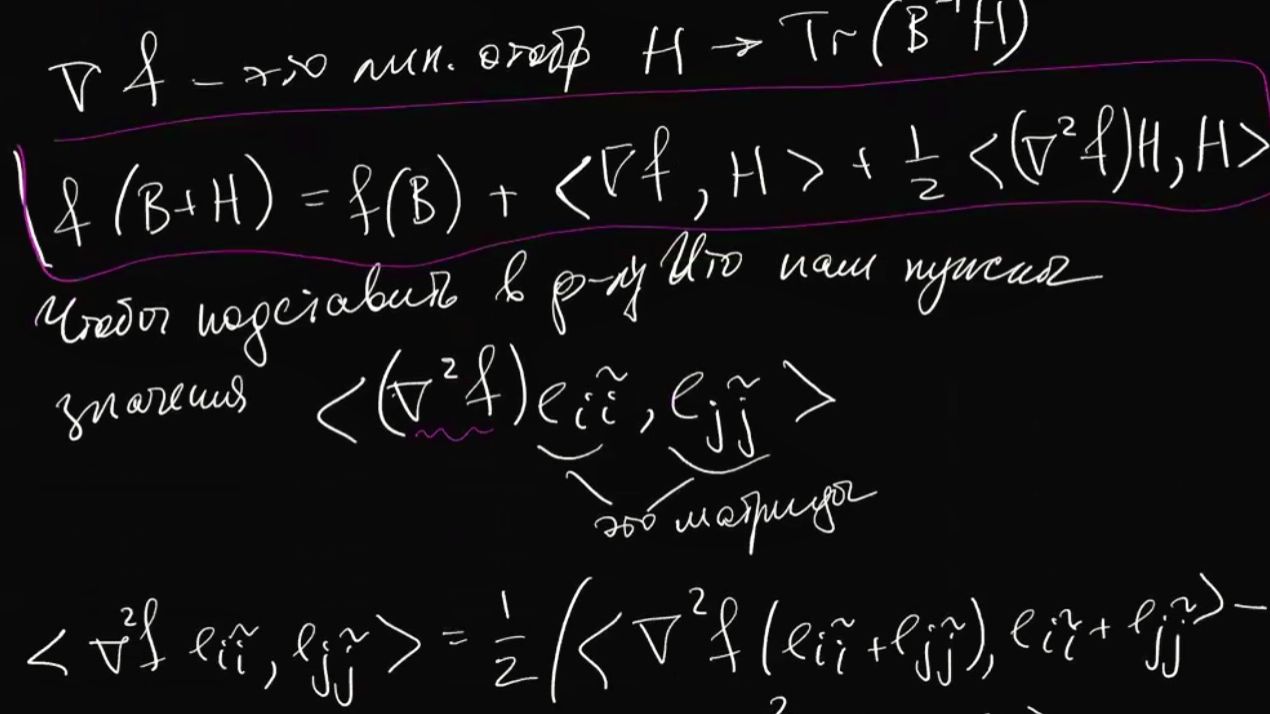 ∇f – это лин. отобр H → Tr(B⁻¹H)
f(B+H) = f(B) + <∇f, H> + 1/2 <(∇²f)H, H>
Чтобы подставить в ф-лу Ито нам нужны
значения <(∇²f)e_{iĩ}, e_{jj̃}>
это матрицы
<∇²f e_{iĩ}, e_{jj̃}> = 1/2 (<∇²f(e_{iĩ}+e_{jj̃}), e_{iĩ}+e_{jj̃}> –